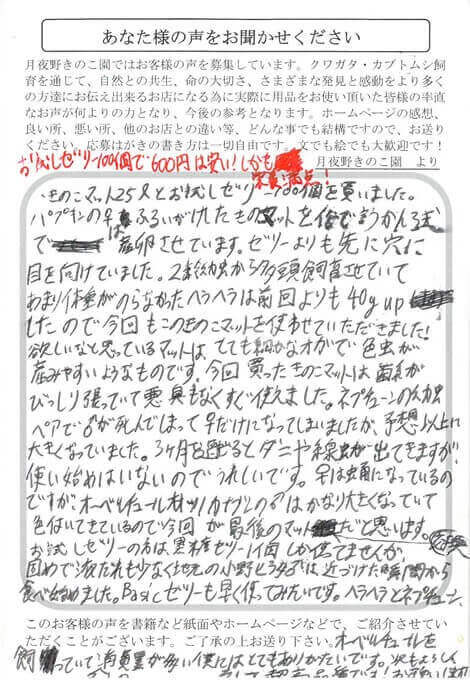 あなた様の声をお聞かせください
月夜野きのこ園ではお客様の声を募集しています。クワガタ・カブトムシ飼
育を通じて、自然との共生、命の大切さ、さまざまな発見と感動をより多く
の方達にお伝え出来るお店になる為に実際に用品をお使い頂いた皆様の率直
なお声が何よりの力となり、今後の参考となります。ホームページの感想、
良い所、悪い所、他のお店との違い等、どんな事でも結構ですので、お送り
ください。応募はがきの書き方は一切自由です。文でも絵でも大歓迎です！
月夜野きのこ園　より
お試しゼリー100個で600円は安い！しかも
栄養満点！
きのこマット25ℓとお試しゼリー100個を買いました。
ふるいがけしたものマットを
で 産卵させています。ゼリーよりも先に穴に
目を向けていました。2幼虫から多頭飼育させていて
あまり体重がのらなかったヘラヘラは前回よりも40g up
したので今回もこのきのこマットを使わせていただきました！
欲しいなと思っているマットは、とても細かなオガで色虫が
産みやすいようなものです。今回買ったきのこマットは菌糸が
びっしり張っていて悪臭もなくすぐ使えました。ネプチューンの幼虫
ペアで♂が死んでしまって♀だけになってしまいましたが、予想以上に
大きくなっていました。3ヶ月も過ぎるとダニや線虫が出てきますが、
使い始めはいないのでうれしいです。♀は蛹になっているの
ですが、オーベルチュール の♂はかなり大きくなっていて
色付いてきているので今回が最後のマットだと思います。
お試しゼリーの方は黒糖ゼリー1個しか使てませんが、
固めで液だれも少なく地元の小野ヒラタ は近づけた瞬間から
食べ始めました。Basicゼリーも早く使ってみたいです。ヘラヘラとネプチューン、
このお客様の声を書籍など紙面やホームページなどで、ご紹介させてい
ただくことがございます。ご了承の上お送り下さい。
オーベルチュールを
飼っていて消費量が多い僕にはとてもありがたいです。次もよろしく